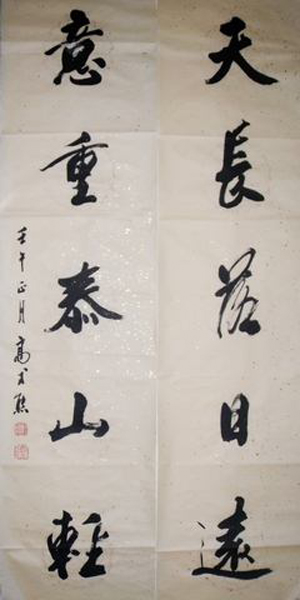 天長落日遠
意重泰山輕
壬午正月高才